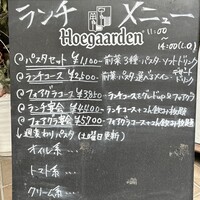 ランチ メニュー
Hoegaarden
11:00
14:00 (L.O)
@パスタセット ¥1,100- 前菜3種・パスタ・ソフトドリンク
@ランチコース ¥2,500- 前菜 パスタ 選べるメイン デザート ドリンク
@フォアグラコース ¥3,850- ランチコース グレードup & フォアグラ
@ランチ宴会 ¥4,400- ランチコース+2h飲み放題
@フォアグラ宴会 ¥5,700- フォアグラコース+2h飲み放題
↓週変わりパスタ (土曜日更新)
オイル系…
トマト系…
クリーム系…